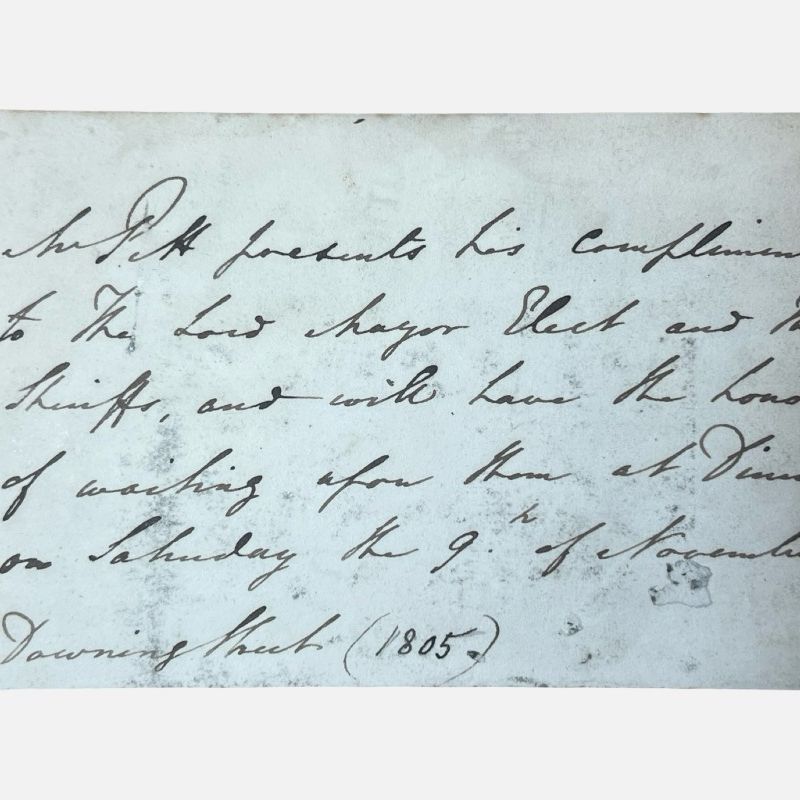 Mr Pitt presents his complimen
to The Lord Mayor Elect and th
Sheriffs, and will have the hono
of waiting upon them at Dinn
on Saturday the 9.h of Novembe
Downing Street (1805.)